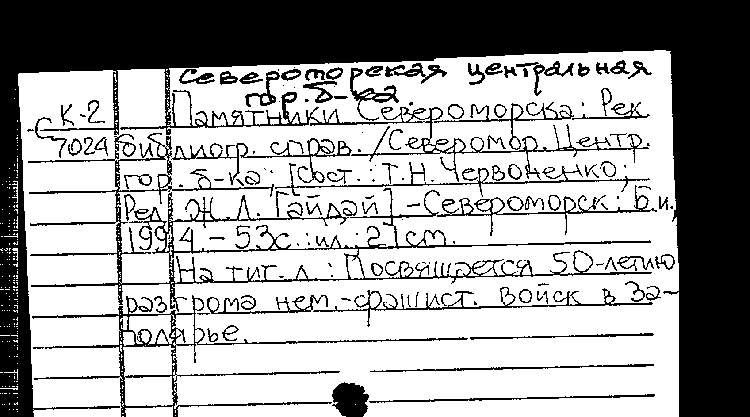 Североморская центральная
гор. б-ка.
К-2 Памятники Североморска: Рек
С 7024 библиогр. справ. / Северомор. Центр.
гор. б-ка; [Сост.: Т.Н. Червоненко;
Ред. Ж.Л. Гайдай] - Североморск: Б.и.,
1994. - 53с.: ил.; 21см.
На тит. л.: Посвящается 50-летию
разгрома нем.-фашист. войск в За-
полярье.